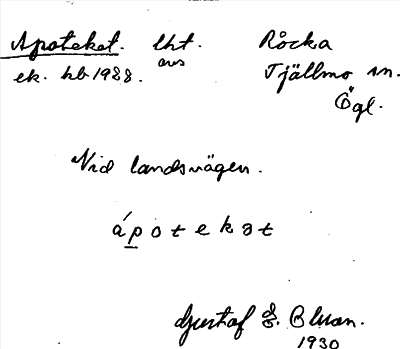 Apoteket. lht. Råcka
avs
ek. kb 1988. Tjällmo sn.
Ögl.
Vid landsvägen.
ápotekət
Gustaf E. Blman.
1930